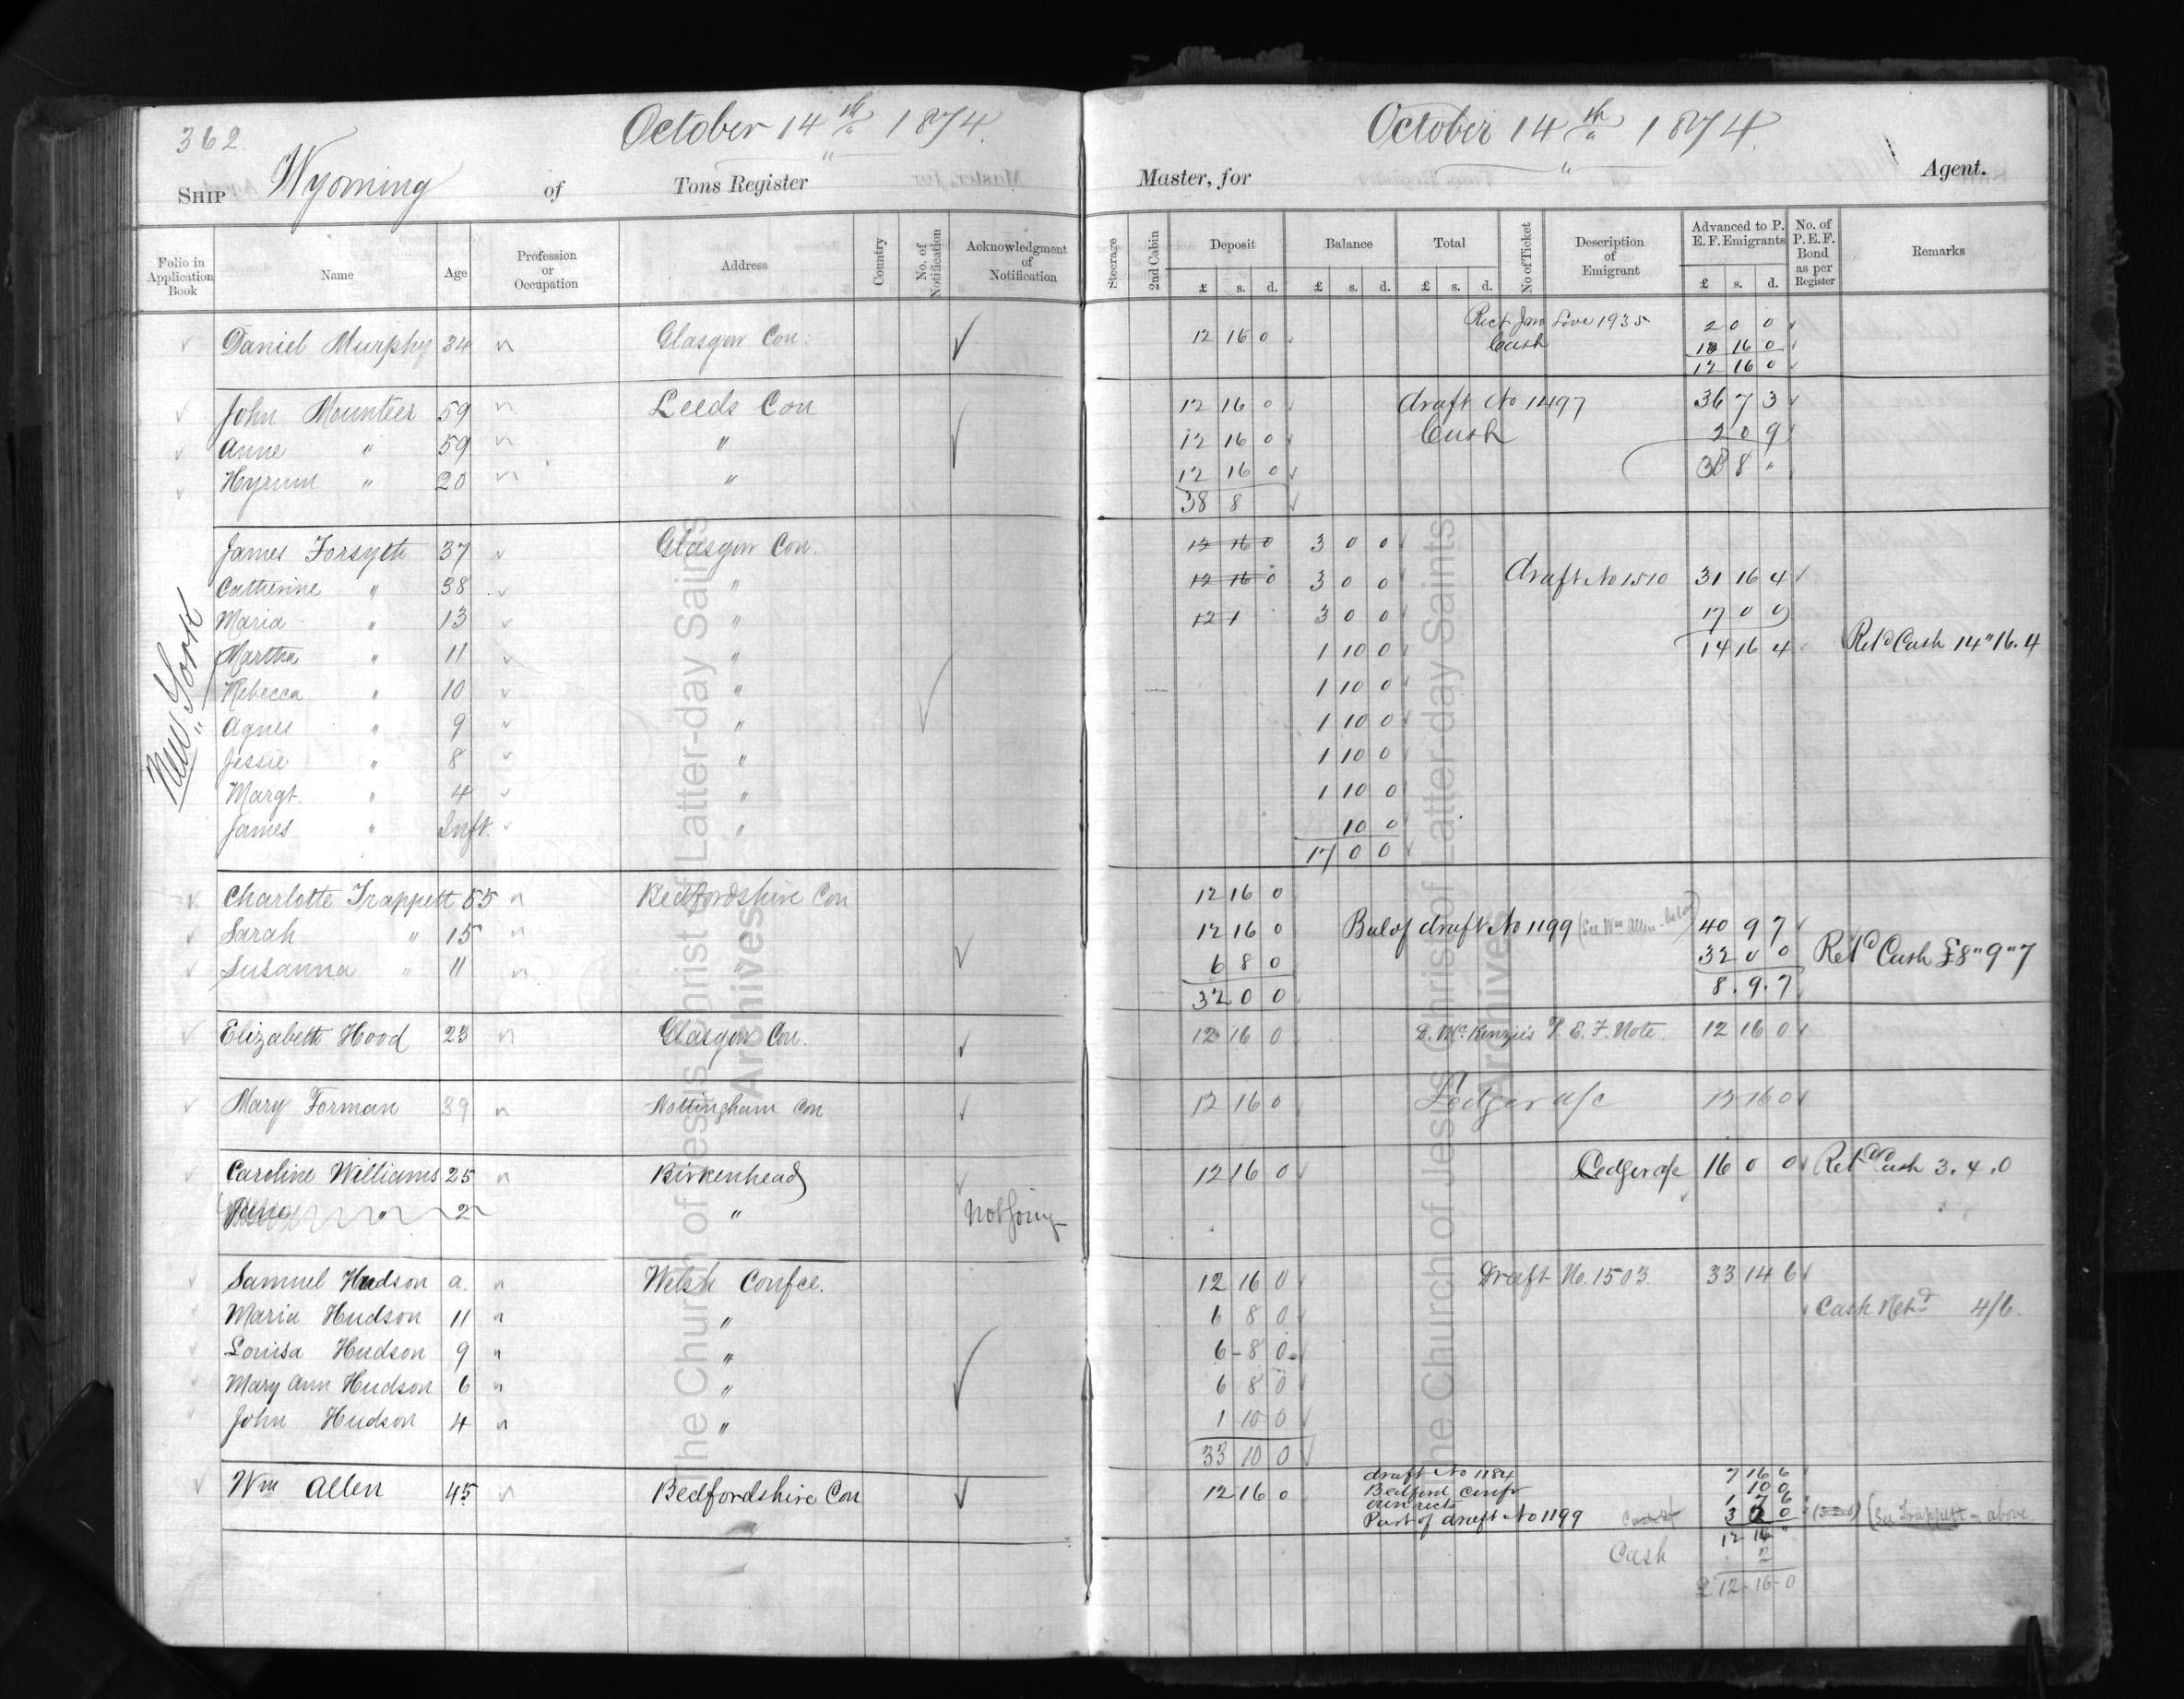 362
October 14th 1874.
October 14th 1874
Ship Wyoming of Tons Register
Master, for Agent.
Folio in Application Book Name Age Profession or Occupation Address Country No. of Notification Acknowledgment of Notification
Steerage 2nd Cabin Deposit £ s. d. Balance £ s. d. Total £ s. d. No of Ticket Description of Emigrant Advanced to P. E. F. Emigrants £ s. d. No. of P. E. F. Bond as per Register Remarks
Daniel Murphy 34 " Glasgow Con. 12 16 0 1935 2 0 0
Cash 10 16 0
12 16 0
John Mounteer 59 " Leeds Con 12 16 0 draft No 1497 36 7 3
Anne " 59 " " 12 16 0 Cash 2 0 9
Hyrum " 20 " " 12 16 0 38 8 "
38 8
New York
James Forsyth 37 " Glasgow Con. 12 16 0 3 0 0
Catherine " 38 " " 12 16 0 3 0 0 draft No 1510 31 16 4
Maria " 13 " " 12 1 3 0 0 17 0 0
Martha " 11 " " 1 10 0 14 16 4 Retd Cash 14"16.4
Rebecca " 10 " " 1 10 0
Agnes " 9 " " 1 10 0
Jessie " 8 " " 1 10 0
Margt. " 4 " " 1 10 0
James " Inft. " " 10 0
17 0 0
Charlotte Trappett 55 " Bedfordshire Con 12 16 0
Sarah " 15 " " 12 16 0 Bal of draft No 1199 (See Wm Allen below) 40 9 7
Susanna " 11 " " 6 8 0 32 0 0 Retd Cash £8"9"7
32 0 0 8 . 9 . 7
Elizabeth Hood 23 " Glasgow Con. 12 16 0 D. McKenzie's P. E. F. Note. 12 16 0
Mary Forman 39 " Nottingham Con 12 16 0 Ledger a/c 12 16 0
Caroline Williams 25 " Birkenhead 12 16 0 Ledger a/c 16 0 0 Retd Cash 3.4.0
" 2 " Not Going
Samuel Hudson a. " Welsh Confce. 12 16 0 Draft No. 1503. 33 14 6
Maria Hudson 11 " " 6 8 0 Cash Retd 4/6.
Louisa Hudson 9 " " 6 - 8 0
Mary Ann Hudson 6 " " 6 8 0
John Hudson 4 " " 1 10 0
33 10 0
Wm Allen 45 " Bedfordshire Con 12 16 0 draft No 1184 7 16 6
Bedford Conf 10 0
1 7 6
Part of draft No 1199 3 2 0 (See Trappett - above
12 16 "
Cash 2
£12-16-0
The Church of Jesus Christ of Latter-day Saints
Archives
The Church of Jesus Christ of Latter-day Saints
Archives